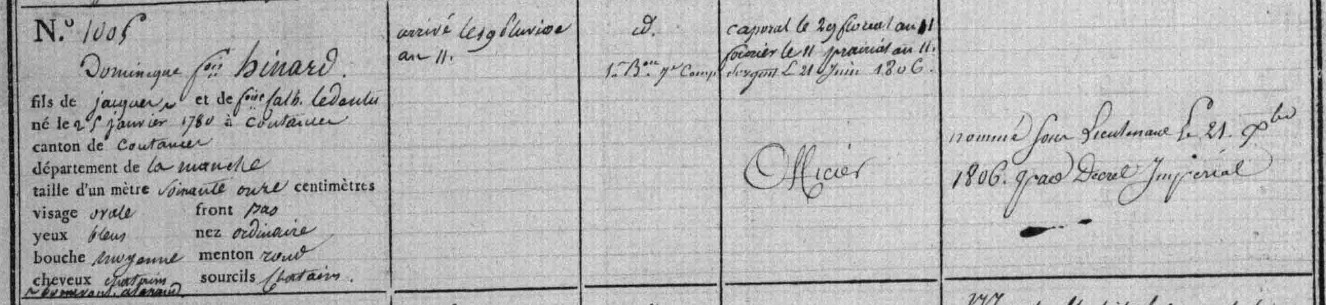 N.° 1005
Dominique f.ois hinard.
fils de jacques et de f.oise Cath. ledentu
né le 25 janvier 1780 à Coutances
canton de Coutances
département de la manche
taille d'un mètre soixante onze centimètres
visage ovale front bas
yeux bleus nez ordinaire
bouche moyenne menton rond
cheveux chatains sourcils Chatains.
arrivé le 19 Pluviose
an 11.
id.
1.er B.on 7.e Comp
caporal le 29 floreal an 11
fourier le 11 prairial an 11.
Sergent le 21 Juin 1806.
Officier
nommé sous Lieutenant le 21. 9bre
1806. par Decret Impérial